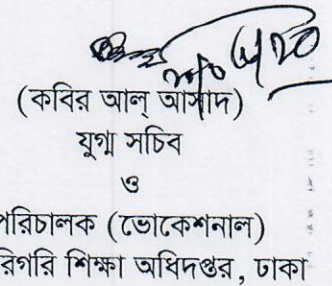 (কবির আল্ আসাদ)
যুগ্ম সচিব
ও
পরিচালক (ভোকেশনাল)
রিগরি শিক্ষা অধিদপ্তর, ঢাকা